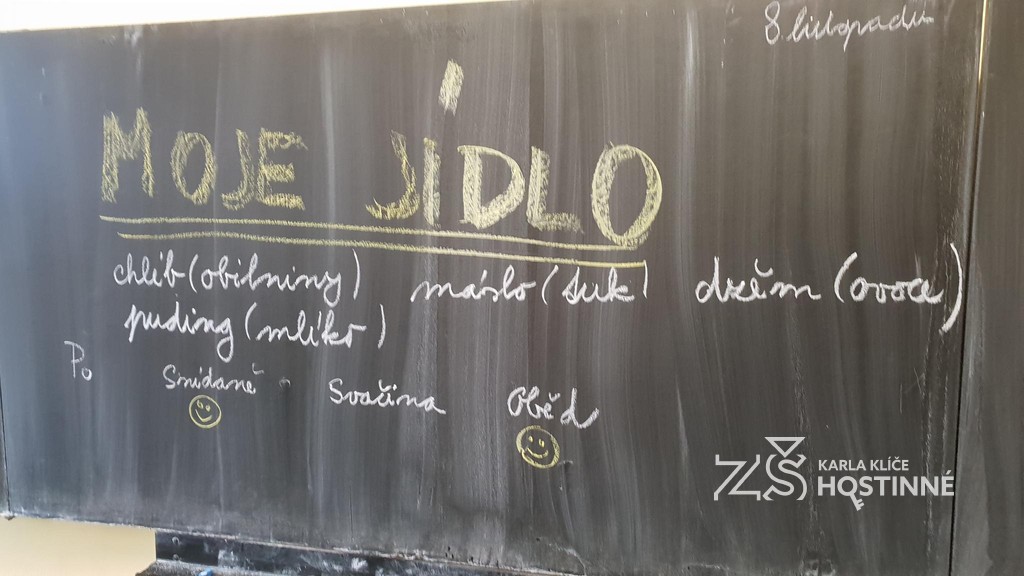 8 listopadu
MOJE JÍDLO
chléb (obilniny) máslo (tuk) džem (ovoce)
puding (mlíko)
Po Snídaně Svačina Oběd
ZŠ KARLA KLÍČE HOSTINNÉ